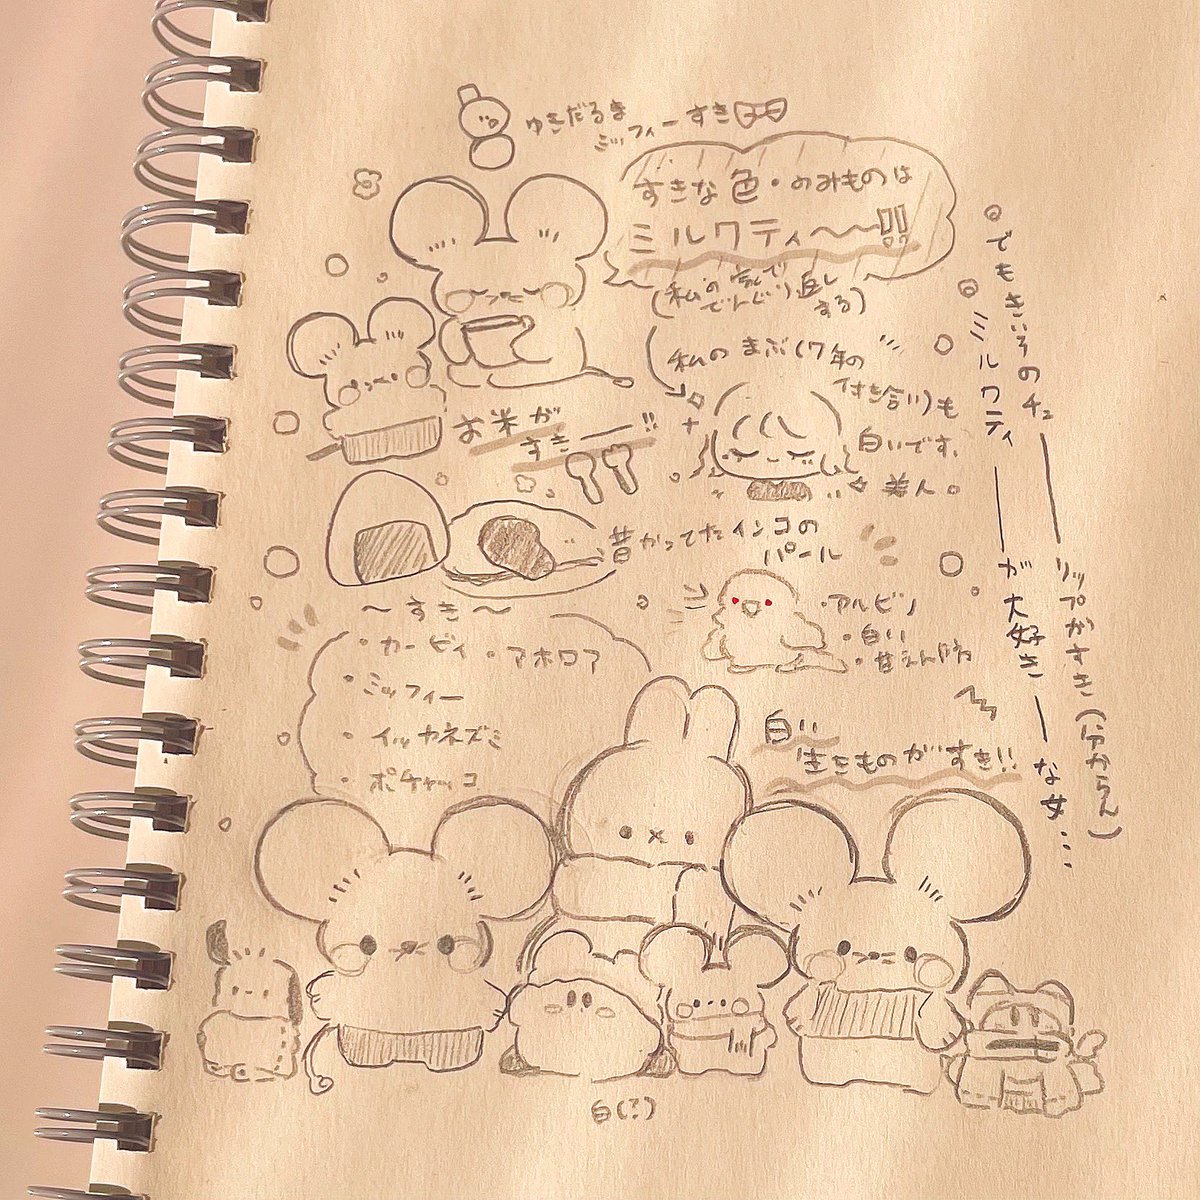 ゆきだるま
ミッフィーすき
すきな色・のみものは
ミルクティ〜〜!!
(私の
でんぐり返し
する)
私のまぶ(7年の
付き合い)も
白いです。
美人。
お米が
すきー!!
昔かってたインコの
パール
・アルビノ
・白い
・甘えん坊
〜すき〜
・カービィ ・マホロア
・ミッフィー
・イッカネズミ
・ポチャッコ
白い
生きものがすき!!
でもきいろのチェーリップがすき(分からん)
ミルクティーが大好きーな女...
白(?)